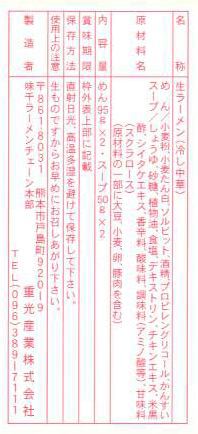 名称 生ラーメン(冷し中華)
原材料名 めん/小麦粉、小麦たん白、ソルビット、酒精、プロピレングリコール、かんすい
スープ/しょうゆ、砂糖、植物油、食塩、デキストリン、チキンエキス、米黒
酢、シイタケエキス、香辛料、酸味料、調味料(アミノ酸等)、甘味料
(スクラロース)
(原材料の一部に大豆、小麦、卵、豚肉を含む)
内容量 めん95g×2・スープ50g×2
賞味期限 枠外表上部に記載
保存方法 直射日光、高温多湿を避けて保存して下さい。
使用上の注意 生ものですからお早めにお召しあがり下さい。
製造者 〒861-8031 熊本市戸島町920-9
味千ラーメンチェーン本部 重光産業株式会社
TEL(096)389-7111